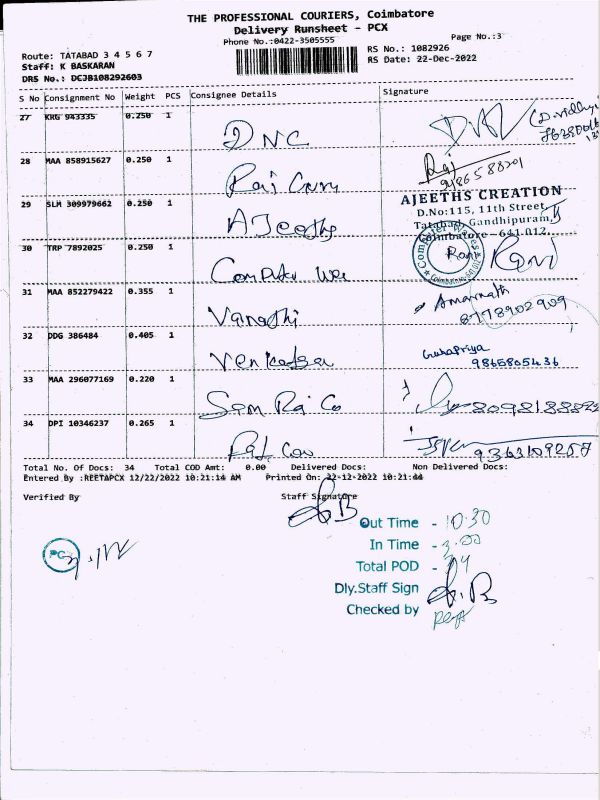 THE PROFESSIONAL COURIERS, Coimbatore
Delivery Runsheet - PCX
Phone No.:0422-3505555
Page No.:3
Route: TATABAD 3 4 5 6 7
RS No.: 1082926
Staff: K BASKARAN
RS Date: 22-Dec-2022
DRS No.: DCJB108292603
S No Consignment No Weight PCS Consignee Details Signature
27 KRG 943335 0.250 1 DNC
28 MAA 858915627 0.250 1 Raj Raj
29 SLM 309979662 0.250 1 AJeeths
AJEETHS CREATION
D.No:115, 11th Street,
Tatabad, Gandhipuram,
Coimbatore - 641 012.
30 TRP 7892025 0.250 1 Computer Rani Rani
31 MAA 852279422 0.355 1 Amarnath
8778902909
32 DDG 386484 0.405 1 Guhapriya
9865805436
33 MAA 296077169 0.220 1
34 DPI 10346237 0.265 1 9363109257
Total No. Of Docs: 34 Total COD Amt: 0.00 Delivered Docs: Non Delivered Docs:
Entered By :REETAPCX 12/22/2022 10:21:14 AM Printed On: 22-12-2022 10:21:44
Verified By Staff Signature
Out Time - 10.30
In Time - 3.00
Total POD -
Dly.Staff Sign
Checked by